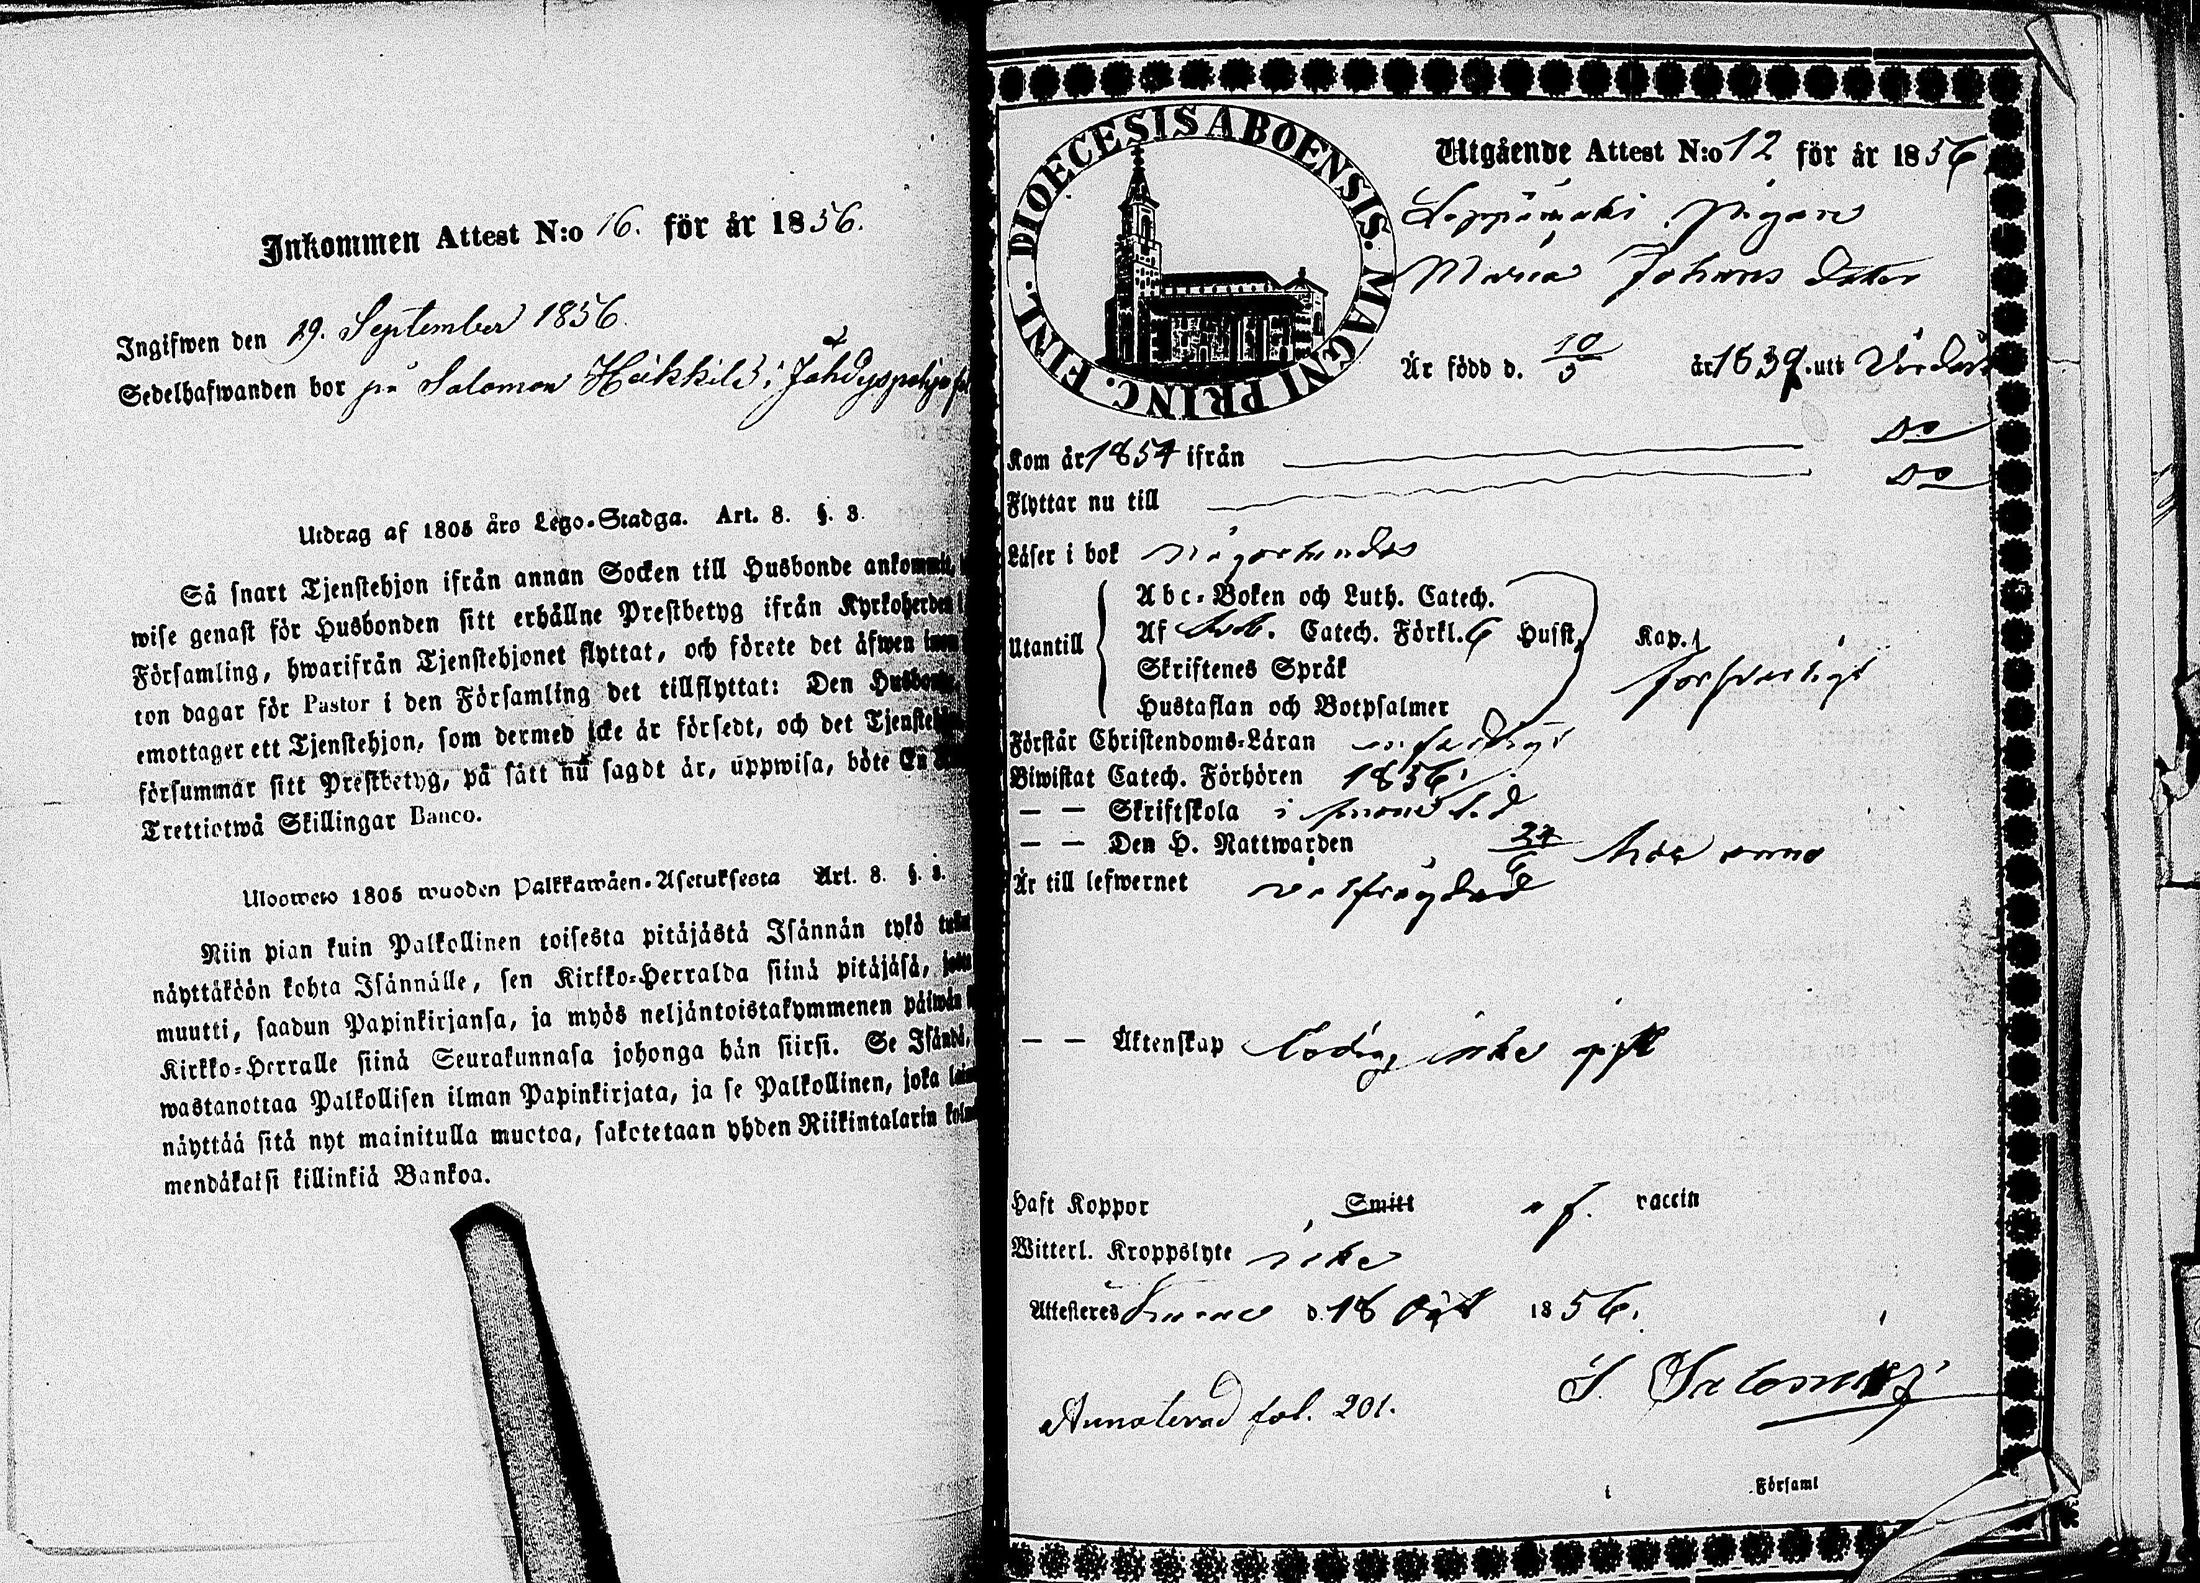 Inkommen Attest N:o 16. för år 1856.
Ingifwen den 29. September 1856.
Sedelhafwanden bor på Salomon Heikkilä i Jähdyspohja
Utdrag af 1805 års Lego-Stadga. Art. 8. §. 3.
Så snart Tjenstehjon ifrån annan Socken till Husbonde ankommit,
wise genast för Husbonden sitt erhållne Prestbetyg ifrån Kyrkoherden i
Församling, hwarifrån Tjenstehjonet flyttat, och förete det äfwen inom
ton dagar för Pastor i den Församling det tillflyttat: Den Husbonde,
emottager ett Tjenstehjon, som dermed icke är försedt, och det Tjenstehjon
försummar sitt Prestbetyg, på sätt nu sagdt är, uppwisa, böte En
Trettiotwå Skillingar Banco.
Ulosweto 1805 wuoden Palkkawäen-Asetuksesta Art. 8. §. 3.
Niin pian kuin Palkollinen toisesta pitäjästä Isännän tykö
näyttäköön kohta Isännälle, sen Kirkko-Herralda siinä pitäjäsä,
muutti, saadun Papinkirjansa, ja myös neljäntoistakymmenen päiwän
Kirkko-Herralle siinä Seurakunnasa johonga hän siirsi. Se Isändä,
wastanottaa Palkollisen ilman Papinkirjata, ja se Palkollinen, joka
näyttää sitä nyt mainitulla muotoa, sakotetaan yhden Riikintalarin
mendäkatsi killinkiä Bankoa.
DIOECESIS ABOENSIS. MAGNI PRINC. FINL.
Utgående Attest N:o 12 för år 1856
Leppämäki Pigan
Maria Johans Dotter
Är född d. 10/5 år 1839. uti Virdois
Kom år 1854 ifrån Do
Flyttar nu till Do
Läser i bok någorlunda
Utantill
Abc-Boken och Luth. Catech.
Af Catech. Förkl. 6 Husst. Kap. 1
Skriftenes Språk försvarligt
Hustaflan och Botpsalmer
Förstår Christendoms-Läran
Biwistat Catech. Förhören 1856.
— — Skriftskola i
— — Den H. Nattwarden 24/6
Är till lefwernet välfrägdad
— — Äktenskap ledig icke
Haft Koppor Smitt vaccin
Witterl. Kroppslyte icke
Attesteres d. 18 1856.
Annoterad fol. 201.
i Församl